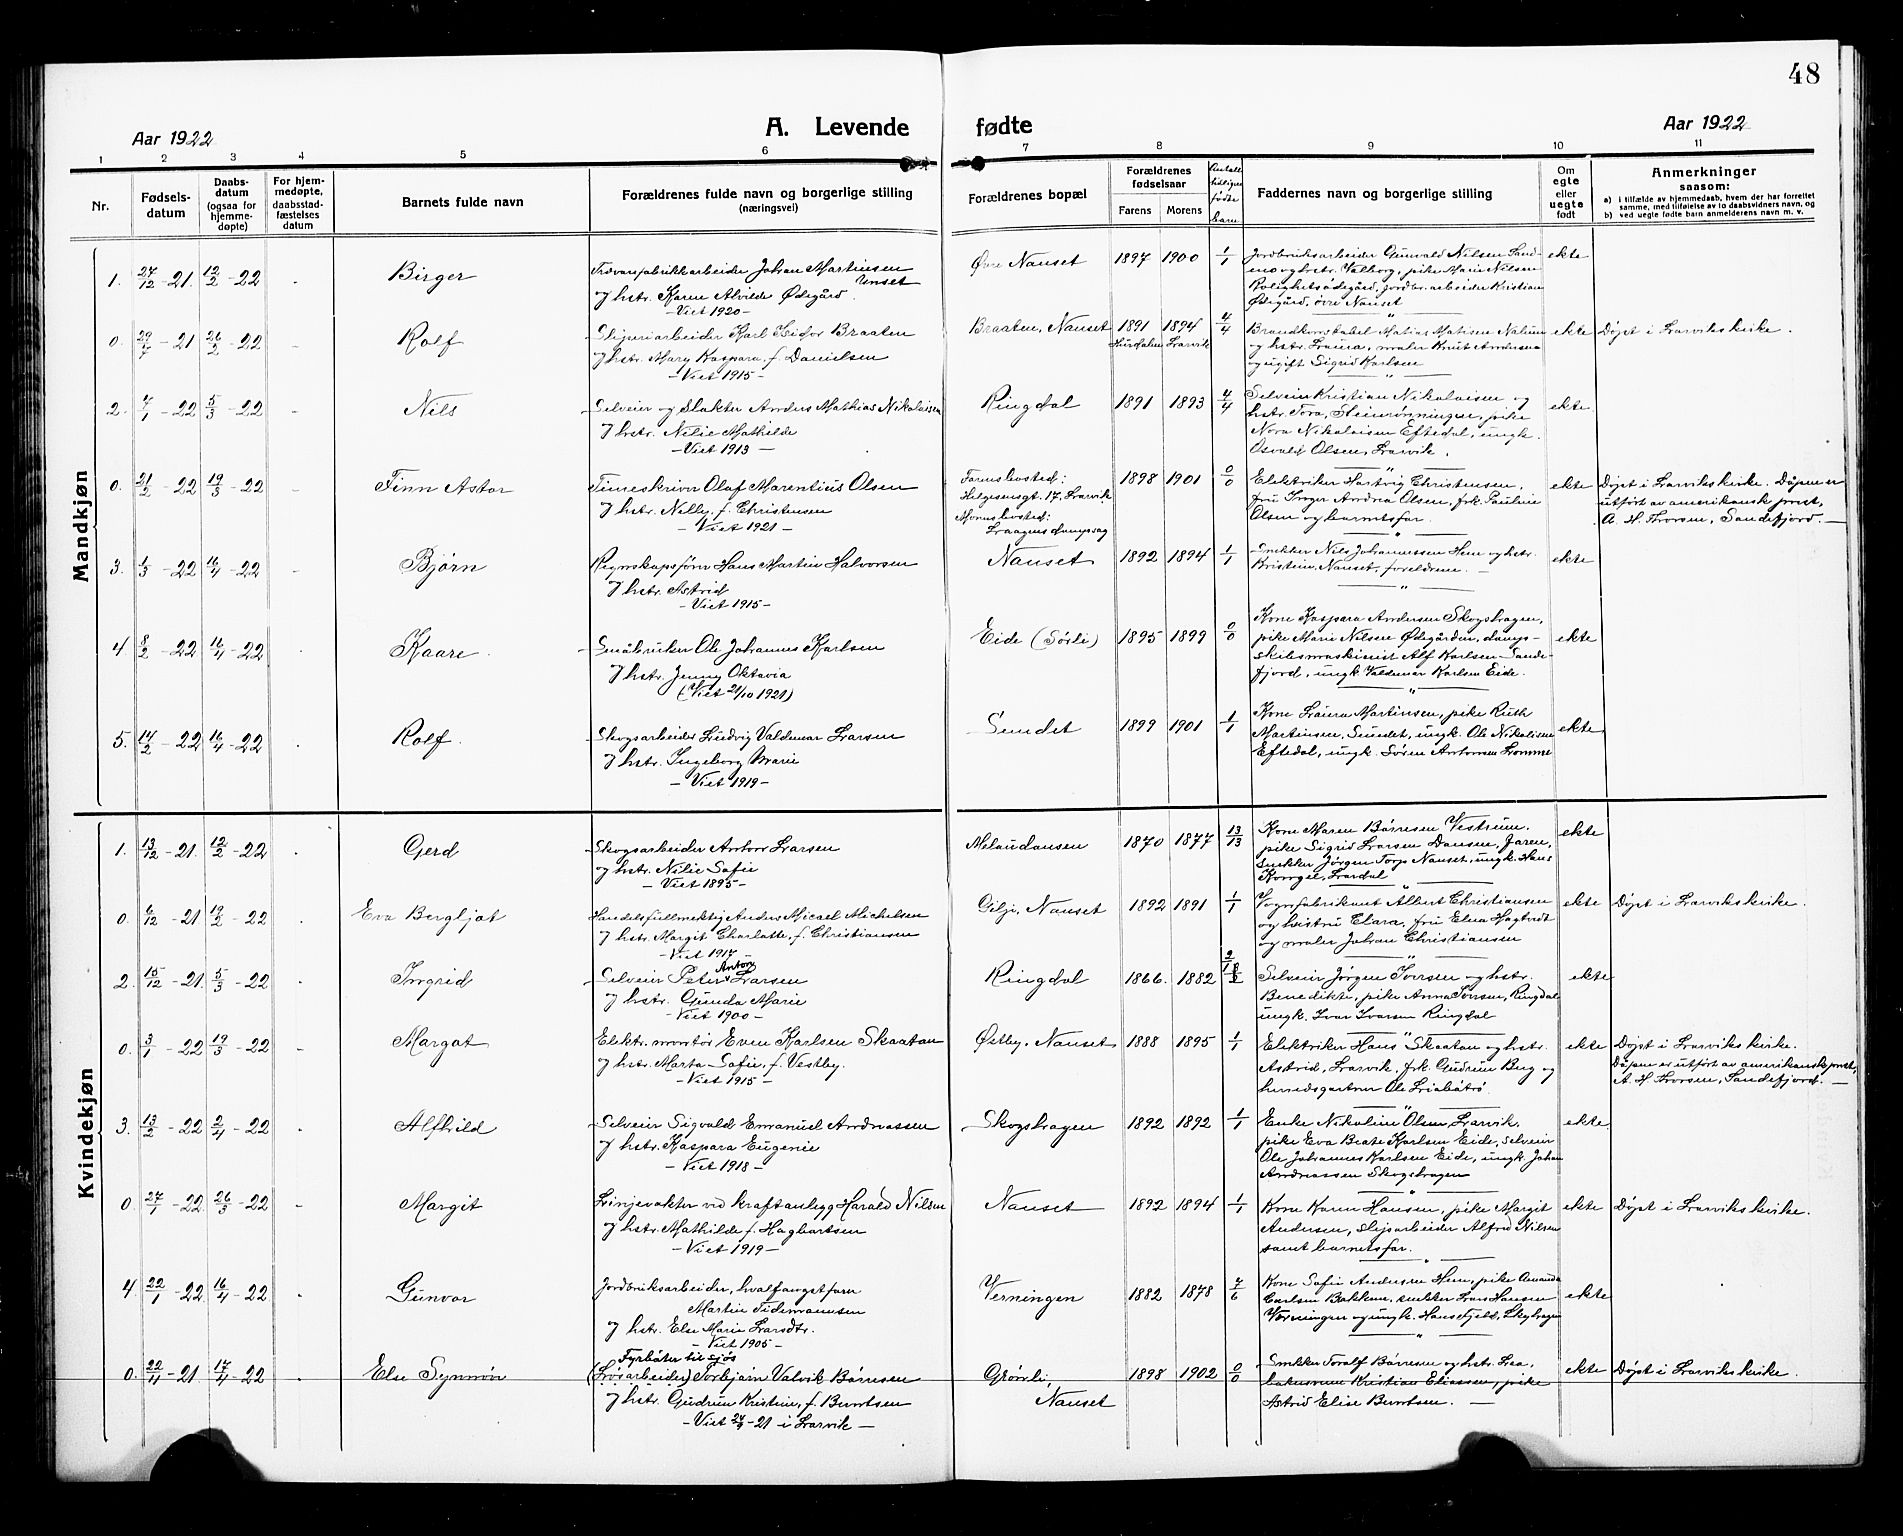 48
Aar 1922
A. Levende fødte
Aar 1922
1 2 3 4 5 6 7 8 9 10 11
Nr.
Fødsels-
datum
Daabs-
datum
(ogsaa for
hjemme-
døpte)
For hjem-
medøpte,
daabsstad-
fæstelses
datum
Barnets fulde navn
Forældrenes fulde navn og borgerlige stilling
(næringsvei)
Forældrenes bopæl
Forældrenes
fødselsaar
Farens Morens
Antall
tidligere
fødte
barn
Faddernes navn og borgerlige stilling
Om
egte
eller
uegte
født
Anmerkninger
saasom:
a) i tilfælde av hjemmedaab, hvem der har forrettet
samme, med tilføielse av to daabsvidners navn, og
b) ved uegte fødte barn anmelderens navn m. v.
Mandkjøn
1. 27/12 - 21. 12/2 - 22 - Birger
Trævarefabrikkarbeider Johan Martinsen
Unset
og hstr. Karen Alvilde Ødegård.
- Viet 1920 -
Øvre Nanset 1897 1900 1/1
Jordbruksarbeider Gunvald Nilsen Sand-
mo og hstr. Valborg, pike Marie Nilsen
Rolighetsødegård, jordbr.arbeider Kristian
Ødegård, øvre Nanset
ekte
0. 29/7 - 21 26/2 - 22 - Rolf
Sliperiarbeider Karl Isidor Braaten
og hstr. Mary Kaspara, f. Danielsen
- Viet 1915 -
Braaten, Nanset 1891 1894 4/4
Hurdalen Larvik
Brandkonstabel Matias Matisen Nalum
og hstr. Laura, maler Knut Andersen
og ugift Sigrid Karlsen
ekte Døpt i Larviks kirke.
2. 4/1 - 22 5/3 - 22 - Nils
Selveier og slakter Anders Mathias Nikolaisen
og hstr. Nilie Mathilde
- Viet 1913 -
Ringdal 1891 1893 4/4
Selveier Kristian Nikolaisen og
hstr. Tora, Steinsrønningen, pike
Nora Nikolaisen Eftedal, ungk.
Osvald Olsen, Larvik.
ekte
0. 21/2 - 22 19/3 - 22 - Finn Astor
Timeskriver Olaf Marentius Olsen
og hstr. Nelly, f. Christensen
- Viet 1921 -
Farens bosted:
Helgesensgt. 17, Larvik
Morens bosted:
Laagens dampsag
1898 1901 0/0
Elektriker Hartvig Christensen,
fru Inger Andrea Olsen, frk. Pauline
Olsen og barnets far.
ekte Døpt i Larviks kirke. Dåpen er
utført av amerikansk prest,
A. H. Thorsen, Sandefjord. -
3. 1/3 - 22 16/4 - 22 - Bjørn
Regnskapsfører Hans Martin Halvorsen
og hstr. Astrid
- Viet 1915 -
Nanset 1892 1894 1/1
Snekker Nils Johannessen Hem og hstr.
Kristine, Nanset, foreldrene. -
ekte
4 8/2 - 22 16/4 - 22 - Kaare.
Småbruker Ole Johannes Karlsen
og hstr. Jenny Oktavia
(Viet 21/10 1921)
Eide (Sørli) 1895 1899 0/0
Kone Kaspara Andersen Skogshagen,
pike Marie Nilsen Ødegården, damp-
skibsmaskinist Alf Karlsen Sande-
fjord, ungk. Valdemar Karlsen Eide.
ekte
5. 14/2 - 22 16/4 - 22 Rolf.
Skogsarbeider Ludvig Valdemar Larsen
og hstr. Ingeborg Marie
- Viet 1919 -
Sundet 1899 1901 1/1
Kone Laura Martinsen, pike Ruth
Martinsen, Sundet, ungk. Ole Nikolaisen
Eftedal, ungk. Søren Antonsen Lomme
ekte
Kvindekjøn
1. 13/12 - 21. 12/2 - 22 - Gerd
Skogsarbeider Anton Larsen
og hstr. Nilie Sofie
- Viet 1895 -
Melaudansen 1870 1877 13/13
Kone Maren Børresen Vestrum,
pike Sigrid Larsen Dansen, Jaren,
snekker Jørgen Torp Nanset, ungk. Hans
Lardal
ekte
0. 6/12 - 21 19/2 - 22 - Eva Bergljot
Handelsfullmektig Anders Micael Michelsen
og hstr. Margit Charlotte, f. Christiansen
- Viet 1917 -
Nanset 1892 1891 1/1
Vognfabrikant Albert Christiansen
og hustru Clara, fru Elna Hagtvedt
og maler Johan Christiansen
ekte Døpt i Larviks kirke.
2. 15/12 - 21. 5/3 - 22 - Ingrid
Anton
Selveier Peter Larsen
og hstr. Gunda Marie
- Viet 1900 -
Ringdal 1866. 1882
Selveier Jørgen Iversen og hstr.
Benedikte, pike Anna Iversen, Ringdal
ungk. Ivar Ivarsen Ringdal
ekte
0. 3/1 - 22 19/3 - 22 - Margot
Elektr. montør Even Karlsen Skaatan
og hstr. Marta Sofie, f. Vestby.
- Viet 1915 -
Østby, Nanset 1888 1895 1/1
Elektriker Hans Skaatan og hstr.
Astrid, Larvik, frk. Gudrun Berg og
herredsgartner Ole Liabøtrø
ekte Døpt i Larviks kirke.
Dåpen er utført av amerikansk prest,
A. H. Thorsen, Sandefjord. -
3. 13/2 - 22 2/4 - 22 - Alfhild
Selveier Sigvald Emanuel Andreassen
og hstr. Kaspara Eugenie
- Viet 1918 -
Skogshagen 1892 1892 1/1
Enke Nikoline Olsen, Larvik,
pike Eva Beate Karlsen Eide, selveier
Ole Johannes Karlsen Eide, ungk. Johan
Andreassen Skogshagen
ekte
0. 27/1 - 22 26/3 - 22 - Margit
Linjevakter ved kraftanlegg Harald Nilsen
og hstr. Mathilde f. Hagbartsen
- Viet 1919 -
Nanset 1892 1894 1/1
Kone Karen Hansen, pike Margit
Andersen, sliparbeider Alfred Nilsen
samt barnets far.
ekte Døpt i Larviks kirke.
4 22/1 - 22 16/4 - 22 - Gunvor
Jordbruksarbeider, hvalfangstfarer
Martin Tidemannsen
og hstr. Else Marie Larsdtr.
- Viet 1905 -
Verningen 1882 1878 7/6
Kone Sofie Andersen Hem, pike Amanda
Carlsen Bakken, snekker Lars Hansen
Verningen og ungk. Hans
ekte
0. 22/11 - 21. 17/4 - 22 - Else Synnøv
Fyrbøter til sjøs
(Løsarbeider) Torbjørn Valvik Børresen
og hstr. Gudrun Kristine, f. Berntsen
- Viet 24/9 - 21 i Larvik -
Grønli,
Nanset
1898 1902 0/0
Snekker Toralf Børresen og hstr. Lea,
Kristian Eliassen, pike
Astrid Elise Berntsen. -
ekte Døpt i Larviks kirke.